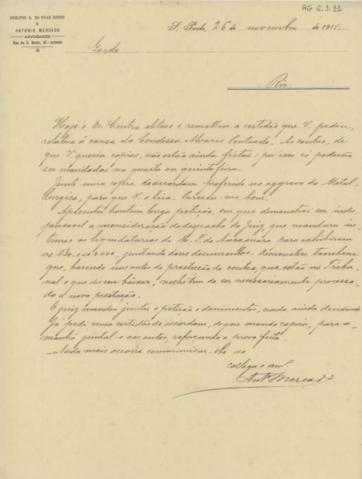 AG 2.3.93
ADOLPHO A. DA SILVA GORDO
E
ANTONIO MERCADO
ADVOGADOS
S. Paulo, 26 de novembro de 1915.
Gordo
Rio
Hoje o Dr. Cintra obteve e remetteu a certidão que V. pediu,
relativa á causa da Condessa Alvares Penteado. As contas, de
que V. queria copias, não estão ainda feitas; por isso só poderão
ser mandadas na quarta ou quinta feira.
Junto uma copia do accordam proferido no aggravo da Metal
para que V. o leia. Pareceu-me bom.
Apresentei hontem longa petição, em que demonstrei ser
a reconsideração do despacho do Juiz que mandara in-
timar os liquidatarios da de Araraquara para exhibirem
os juntando bons documentos; demonstrei tambem
que, havendo umas contas de prestação de contas que estão no Tribu-
nal e que devem baixar, nestes tem de ser necessariamente processa-
da a nova prestação.
O juiz mandou juntar a petição e documentos, nada ainda decidindo
Já pedi uma certidão do accordam, de que mando copia, para a-
manhã juntal-a aos autos, reforçando a prova feita.
Nada mais occorre communicar-lhe o
collega e am.
Ant. Mercado